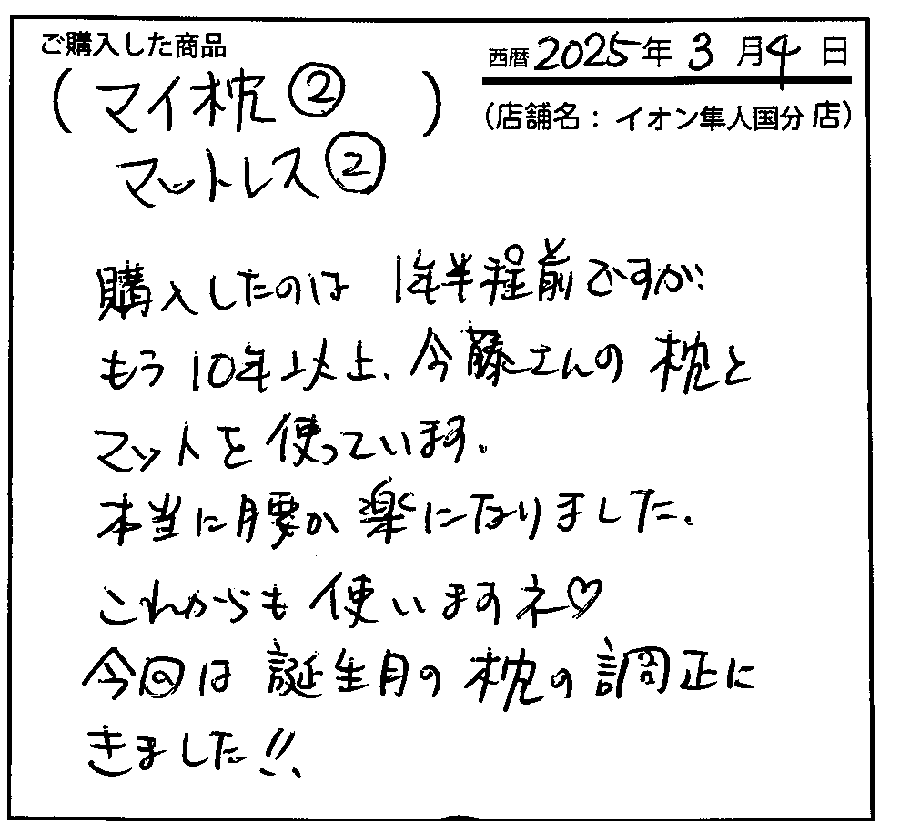 ご購入した商品
西暦 2025年 3月4日
(マイ枕② )
(店舗名：イオン隼人国分店)
マットレス②
購入したのは 1年半程前ですが
もう10年以上、今藤さんの 枕と
マットを使っています。
本当に腰が楽になりました。
これからも使いますネ♡
今回は誕生月の枕の調正に
きました!!